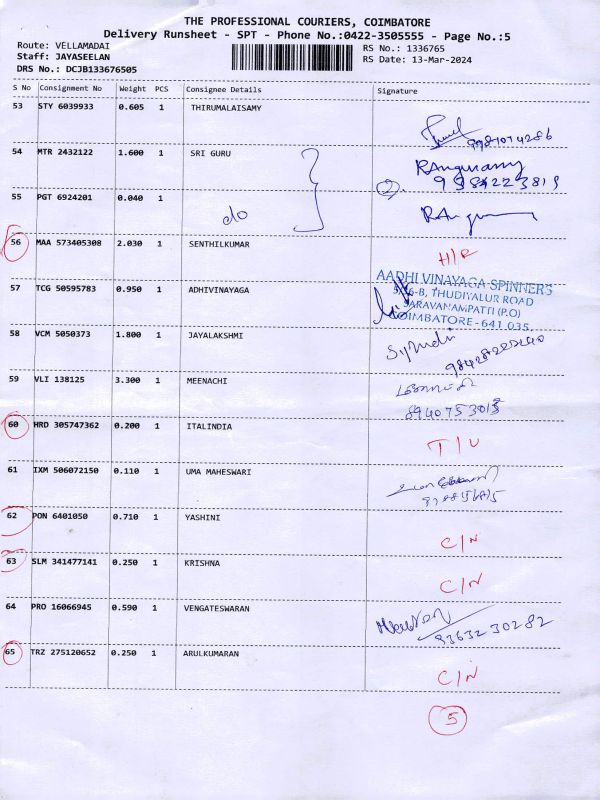 THE PROFESSIONAL COURIERS, COIMBATORE
Delivery Runsheet - SPT - Phone No.:0422-3505555 - Page No.:5
Route: VELLAMADAI
Staff: JAYASEELAN
DRS No.: DCJB133676505
RS No.: 1336765
RS Date: 13-Mar-2024
S No Consignment No Weight PCS Consignee Details Signature
53 STY 6039933 0.605 1 THIRUMALAISAMY
54 MTR 2432122 1.600 1 SRI GURU
55 PGT 6924201 0.040 1 do
56 MAA 573405308 2.030 1 SENTHILKUMAR H/R
57 TCG 50595783 0.950 1 ADHIVINAYAGA
AADHI VINAYAGA SPINNERS
THUDIYALUR ROAD
SARAVANAMPATTI (P.O)
COIMBATORE - 641 035.
58 VCM 5050373 1.800 1 JAYALAKSHMI
59 VLI 138125 3.300 1 MEENACHI
60 HRD 305747362 0.200 1 ITALINDIA T/U
61 IXM 506072150 0.110 1 UMA MAHESWARI
62 PON 6401050 0.710 1 YASHINI C/N
63 SLM 341477141 0.250 1 KRISHNA C/N
64 PRO 16066945 0.590 1 VENGATESWARAN
9363230282
65 TRZ 275120652 0.250 1 ARULKUMARAN C/N
5